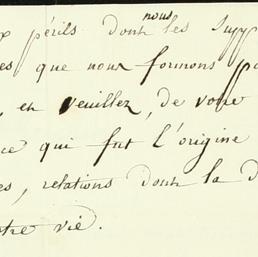 périls dont nous les supp
es que nous formons
, et veuillez, de votre
ce qui fut l'origine
es, relations dont la d
tre vie.